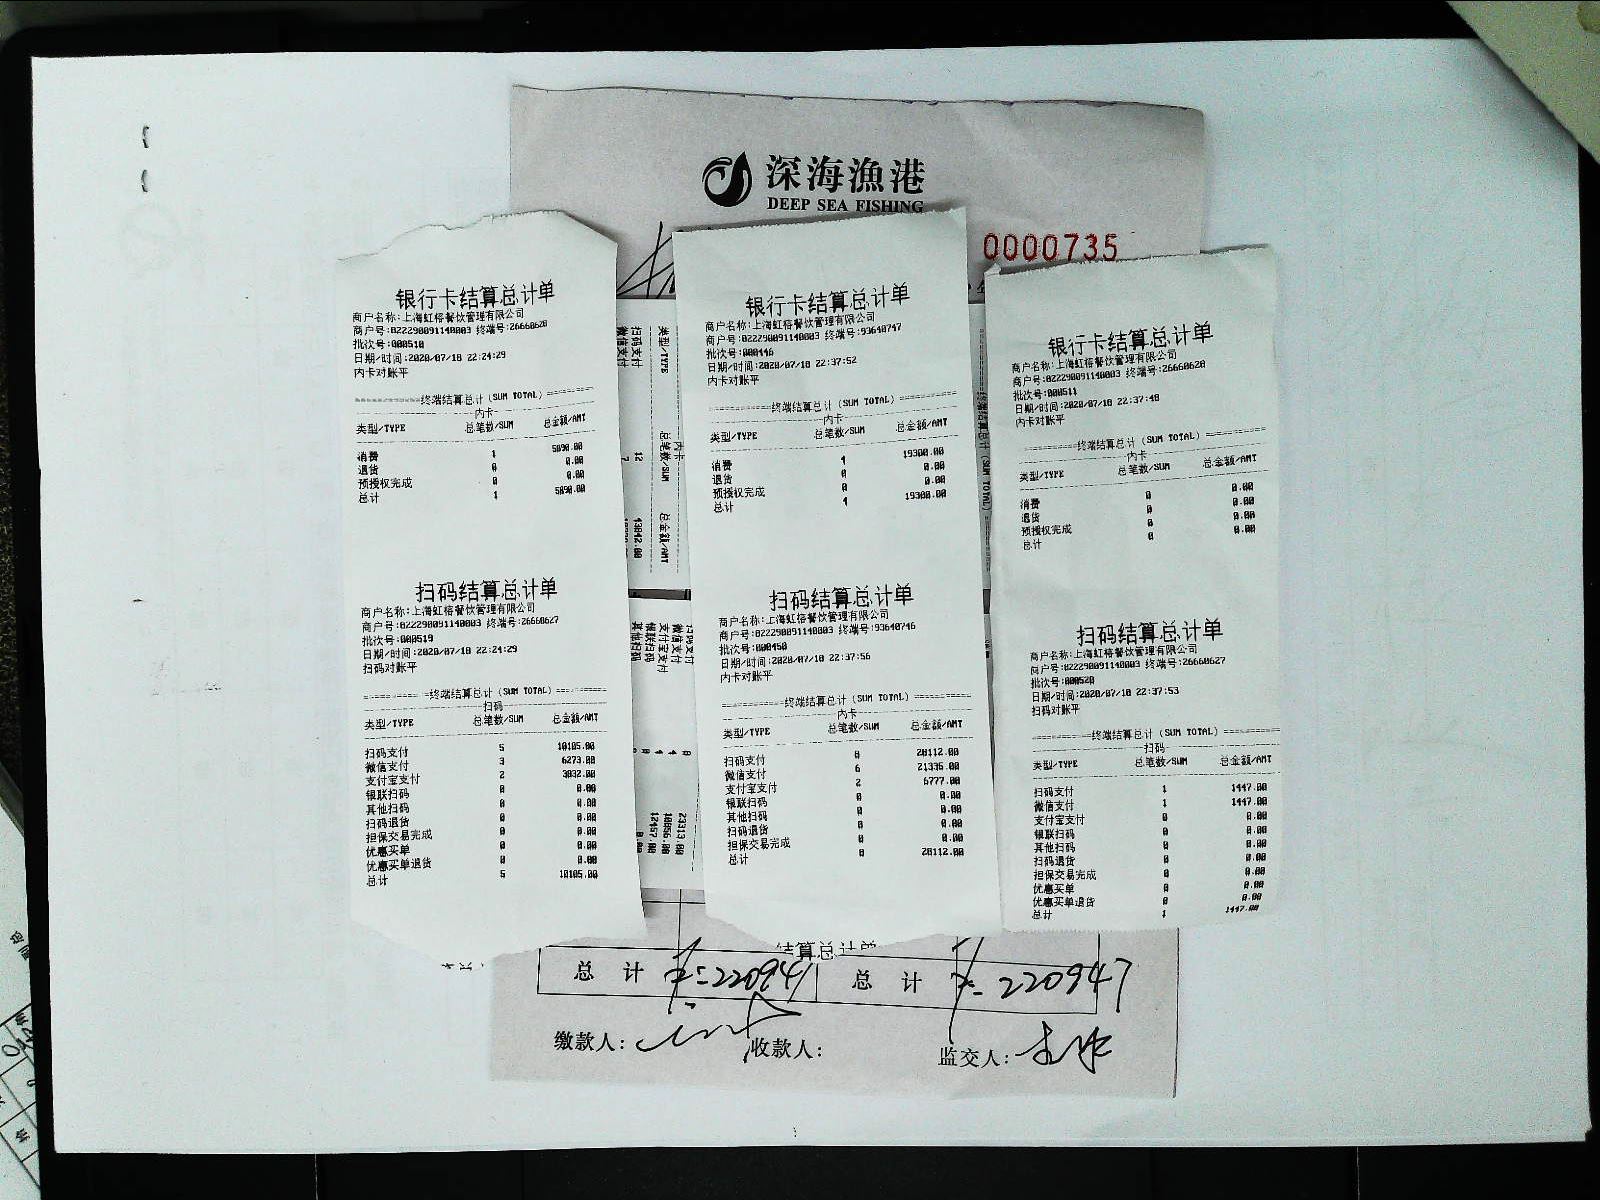 深海漁港
DEEP SEA FISHING
0000735
银行卡结算总计单
商户名称:上海虹榕餐饮管理有限公司
商户号:822290091140003 终端号:26660628
批次号:000510
日期/时间:2020/07/18 22:24:29
内卡对账平
终端结算总计(SUM TOTAL)
内卡
类型/TYPE 总笔数/SUM 总金额/AMT
消费 1 5890.00
退货 0 0.00
预授权完成 0 0.00
总计 1 5890.00
扫码结算总计单
商户名称:上海虹榕餐饮管理有限公司
商户号:822290091140003 终端号:26660627
批次号:000519
日期/时间:2020/07/18 22:24:29
扫码对账平
终端结算总计(SUM TOTAL)
扫码
类型/TYPE 总笔数/SUM 总金额/AMT
扫码支付 5 10105.00
微信支付 3 6273.00
支付宝支付 2 3832.00
银联扫码 0 0.00
其他扫码 0 0.00
扫码退货 0 0.00
担保交易完成 0 0.00
优惠买单 0 0.00
优惠买单退货 0 0.00
总计 5 10105.00
银行卡结算总计单
商户名称:上海虹榕餐饮管理有限公司
商户号:822290091140003 终端号:93640747
批次号:000446
日期/时间:2020/07/18 22:37:52
内卡对账平
终端结算总计(SUM TOTAL)
内卡
类型/TYPE 总笔数/SUM 总金额/AMT
消费 4 19300.00
退货 0 0.00
预授权完成 0 0.00
总计 4 19300.00
扫码结算总计单
商户名称:上海虹榕餐饮管理有限公司
商户号:822290091140003 终端号:93640746
批次号:000450
日期/时间:2020/07/18 22:37:56
内卡对账平
终端结算总计(SUM TOTAL)
内卡
类型/TYPE 总笔数/SUM 总金额/AMT
扫码支付 8 28112.00
微信支付 6 21335.00
支付宝支付 2 6777.00
银联扫码 0 0.00
其他扫码 0 0.00
扫码退货 0 0.00
担保交易完成 0 0.00
总计 8 28112.00
银行卡结算总计单
商户名称:上海虹榕餐饮管理有限公司
商户号:822290091140003 终端号:26660628
批次号:000511
日期/时间:2020/07/18 22:37:48
内卡对账平
终端结算总计(SUM TOTAL)
内卡
类型/TYPE 总笔数/SUM 总金额/AMT
消费 0 0.00
退货 0 0.00
预授权完成 0 0.00
总计 0 0.00
扫码结算总计单
商户名称:上海虹榕餐饮管理有限公司
商户号:822290091140003 终端号:26660627
批次号:000520
日期/时间:2020/07/18 22:37:53
扫码对账平
终端结算总计(SUM TOTAL)
扫码
类型/TYPE 总笔数/SUM 总金额/AMT
扫码支付 1 1447.00
微信支付 1 1447.00
支付宝支付 0 0.00
银联扫码 0 0.00
其他扫码 0 0.00
扫码退货 0 0.00
担保交易完成 0 0.00
优惠买单 0 0.00
优惠买单退货 0 0.00
总计 1 1447.00
类型/TYPE 总笔数/SUM 总金额/AMT
扫码支付 12 43842.00
微信支付 7
内卡
扫码支付 8 23313.00
微信支付 4 10856.00
支付宝支付 4 12457.00
银联扫码 0 0.00
其他扫码 0
结算总计单
总计 220947 总计 220947
缴款人: 收款人: 监交人: